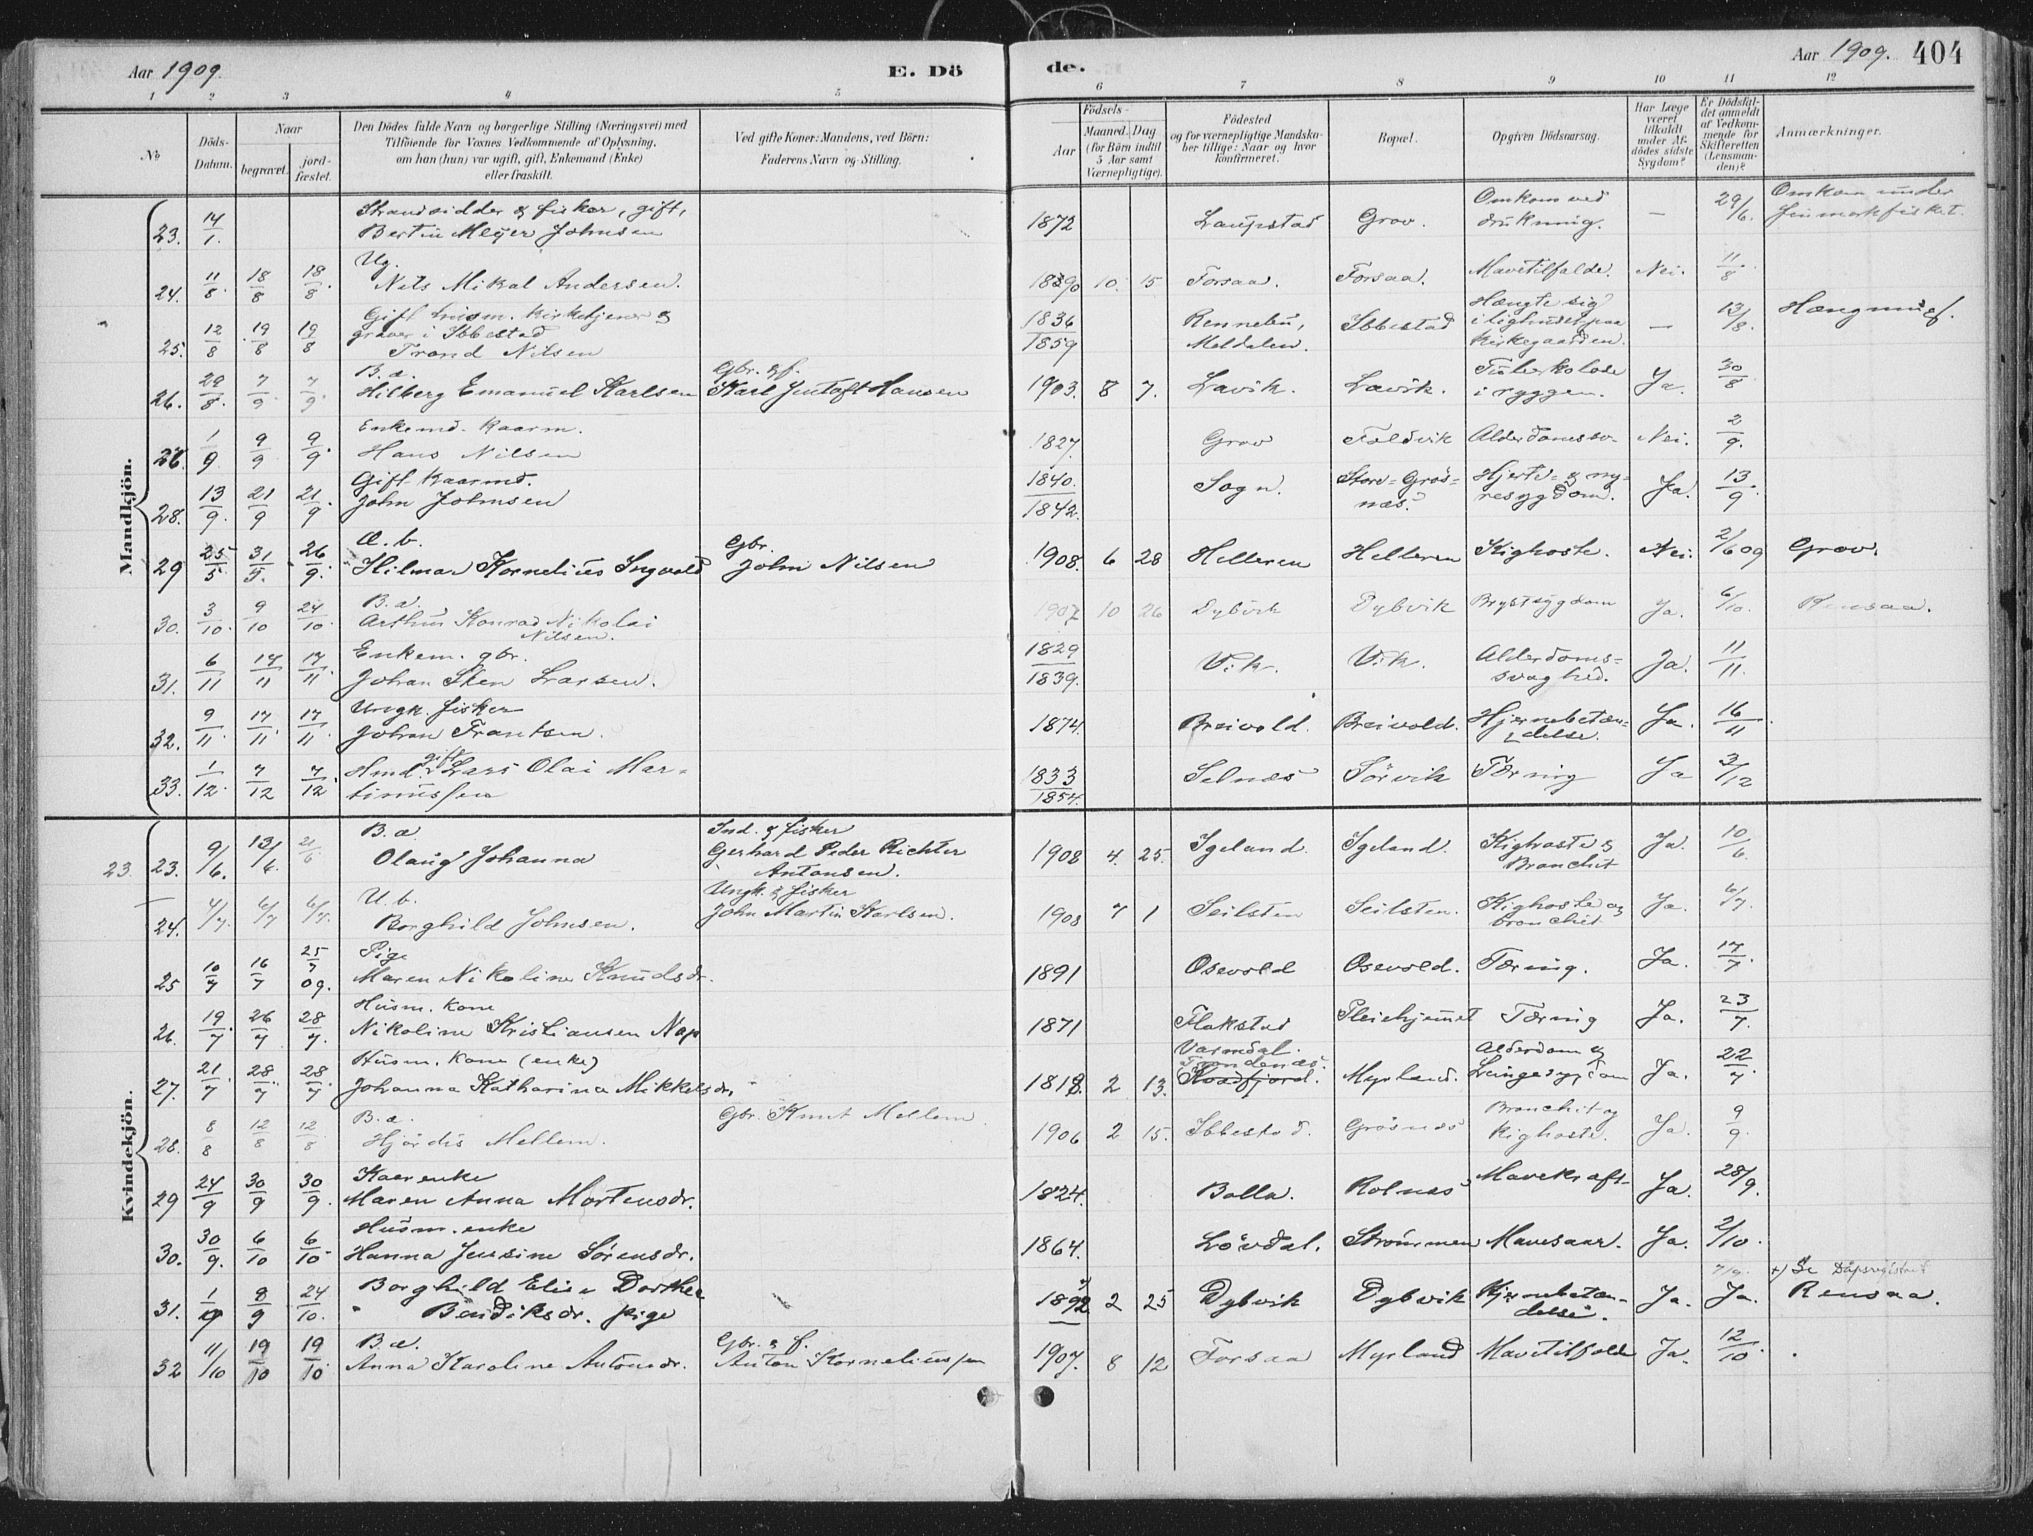 Aar 1909. E. Dö
de. Aar 1909. 404
1 2 3 4 5
6 7 8 9 10 11 12
No
Döds-Datum.
Naar
begravet.
jord-fæstet.
Den Dödes fulde Navn og borgerlige Stilling (Næringsvei) med
Tilföiende for Voxnes Vedkommende af Oplysning,
om han (hun) var ugift, gift, Enkemand (Enke)
eller fraskilt.
Ved gifte Koner: Mandens, ved Börn:
Faderens Navn og Stilling.
Födsels-
Aar
Maaned. Dag
(for Börn indtil
5 Aar samt
Værnepligtige).
Födested
og for værnepligtige Mandska-
ber tillige: Naar og hvor
konfirmeret.
Bopæl.
Opgiven Dödsaarsag.
Har Læge
været
tilkaldt
under Af-
dödes sidste
Sygdom?
Er Dödsfal-
det anmeldt
af Vedkom-
mende for
Skifteretten
(Lensman-
den)?
Anmærkninger.
Mandkjön.
23. 14/1. Strandsidder & fisker, gift, Bertin Meyer Johnsen 1872 Laupstad Grov. Omkom ved drukning. — 29/6. Omkom under Finmarkfisket
24. 11/8. 18/8 18/8. Ug. Nils Mikal Andersen. 1890 10. 15 Forsaa. Forsaa. Mavetilfælde. Nei. 11/8.
25. 12/8 19/8 19/8 Gift husm. kirketjener & graver i Ibbestad Trond Nilsen 1836/1859 Rennebu, Meldalen. Ibbestad Hængte sig i lighuset paa kirkegaarden. — 13/8.
26. 29/8. 7/9 7/9. B. æ. Hilberg Emanuel Karlsen Gbr. & f. Karl Gustaft Hansen 1903. 8 7. Lavik. Lavik. Tuberkolose i ryggen. Ja. 30/8
1/9 9/9 9/9 Enkemd. kaarm. Hans Nilsen 1827 Grov Foldvik Alderdomssv. Nei. 2/9.
28. 13/9. 21/9 21/9. Gift kaarmd. John Johnsen 1840./1842. Sogn. Store-Grøsnæs. Hjerte- & nyresygdom. Ja. 13/9.
29 25/5 31/5. 26/9. Æ. b. Hilmar Kornelius Ingvald Gbr. John Nilsen 1908. 6 28 Helleren Helleren Kighoste. Nei. 2/6 09 Grov.
30. 3/10. 9/10 24/10. B. æ. Arthur Konrad Nikolai Nilsen. 1907 10 26 Dybvik Dybvik Brystsygdom Ja. 6/10. Rensaa.
31. 6/11 17/11 17/11. Enkem. gbr. Johan Sten Larsen. 1829/1839. Vik. Vik. Alderdomssvaghed. Ja. 11/11.
32. 9/11. 17/11. 17/11. Ungk. fisker Johan Frantsen. 1874. Breivold. Breivold. Hjernebetændelse. Ja. 16/11
33. 1/12. 7/12 7/12. Hmd. gift Lars Olai Martinussen 1833/1854. Selnæs Sørvik Tæring Ja 3/12
Kvindekjön.
23. 23. 9/6. 13/6. 21/6 B. æ Olaug Johanna Ind. & fisker Gerhard Peder Richter Antonsen. 1908 4. 25. Igeland. Igeland. Kighoste & Bronchit Ja. 10/6.
24. 4/7. 6/7 6/7. U. b. Borghild Johnsen. Ungk. & fisker John Martin Karlsen. 1908 7 1 Seilsten Seilsten. Kighoste og bronchit Ja. 6/7.
25 10/7 16/7 25/7 09. Pige Maren Nikoline Knudsdr. 1891 Osevold Osevold. Tæring. Ja. 17/7.
26. 19/7. 26/7 28/7. Husm. kone Nikoline Kristiansen Nap 1871 Flakstad Pleiehjemmet Tæring Ja. 23/7.
27. 21/7 28/7. 28/7 Husm. kone (enke) Johanna Katharina Mikkelsdr. 1818. 2 13. Varmdal. Trondenæs. Kvæfjord. Myrland. Alderdom & Lungesygdom Ja. 22/7.
28. 8/8 12/8 12/8 B. æ. Hjørdis Mellem. Gbr. Knut Mellem. 1906 2 15. Ibbestad. Grøsnæs Bronchit og kighoste. Ja. 9/9.
29 24/9 30/9 30/9. Kaarenke Maren Anna Mortensdr. 1824. Bolla. Rolnæs Mavekræft- Ja. 28/9.
30. 30/9. 6/10 6/10. Husm. enke Hanna Jensine Sørensdr. 1864. Løvdal. Strømmen Mavesaar. Ja. 2/10.
31. 1/9 8/9 24/10. Borghild Elise Dorthea Bendiksdr. pige 1892 2 25 Dybvik Dybvik Hjernebetændelse. Ja. Ja. +) Se Dåpsregistret Rensaa.
32 11/10 19/10 19/10 B. æ. Anna Karoline Antonsdr. Gbr. & f. Anton Korneliussen 1907. 8 12 Forsaa Myrland Mavetilfælde Ja. 12/10.